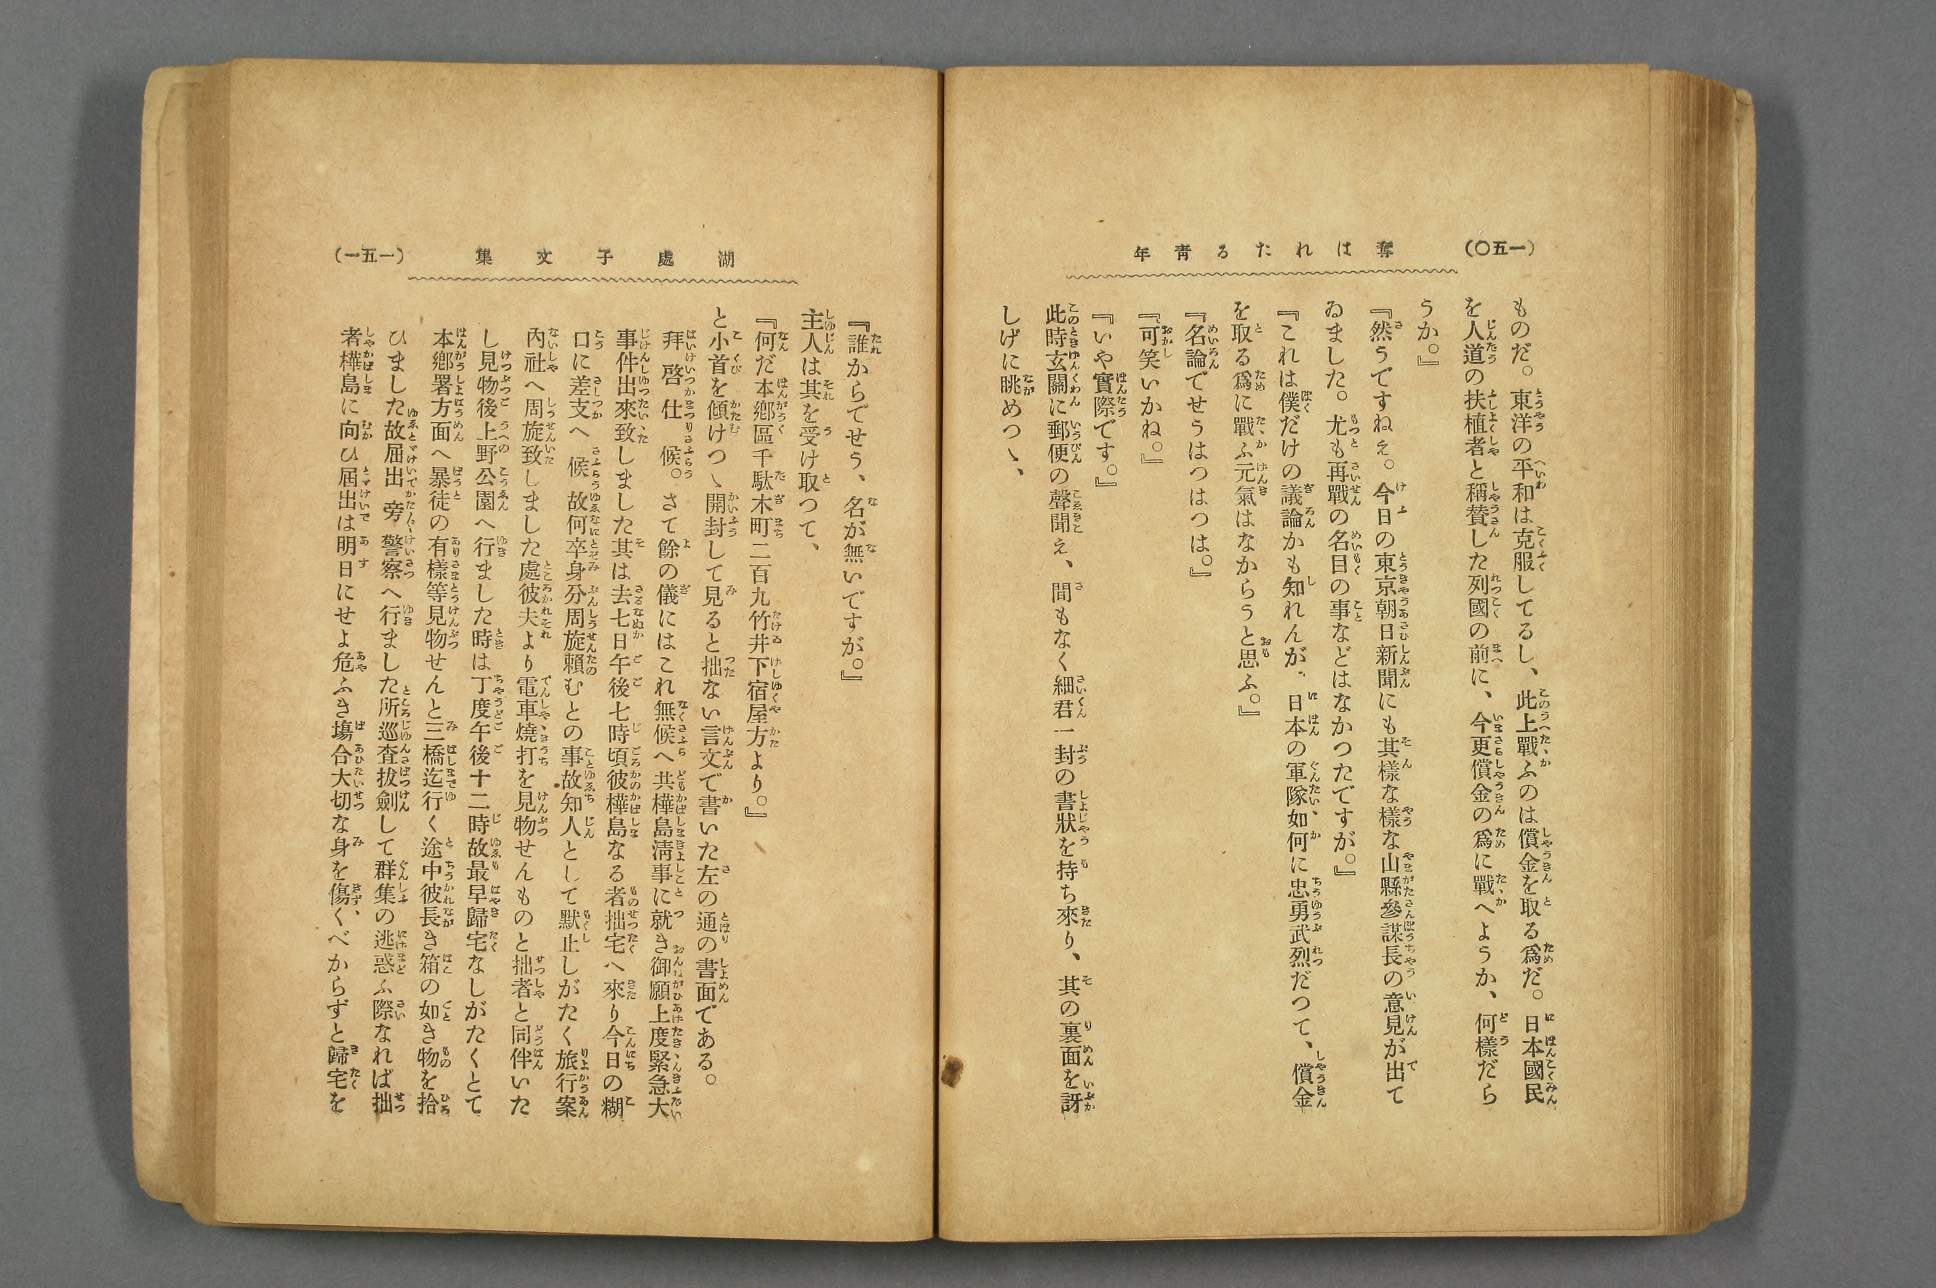 (一五〇)
奪はれたる靑年
ものだ。東洋の平和は克服してるし、此上戰ふのは償金を取る爲だ。日本國民
を人道の扶植者と稱賛した列國の前に、今更償金の爲に戰へようか、何樣だら
うか。』
『然うですねぇ。今日の東京朝日新聞にも其樣な樣な山縣參謀長の意見が出て
ゐました。尤も再戰の名目の事などはなかつたですが。』
『これは僕だけの議論かも知れんが、日本の軍隊如何に忠勇武烈だつて、償金
を取る爲に戰ふ元氣はなからうと思ふ。』
『名論でせうはつはつは。』
『可笑いかね。』
『いや實際です。』
此時玄關に郵便の聲聞え、間もなく細君一封の書狀を持ち來り、其の裏面を訝
しげに眺めつゝ、
湖處子文集
(一五一)
『誰からでせう、名が無いですが。』
主人は其を受け取つて、
『何だ本鄕區千駄木町二百九竹井下宿屋方より。』
と小首を傾けつゝ開封して見ると拙ない言文で書いた左の通の書面である。
拜啓仕候。さて餘の儀にはこれ無候へ共樺島淸事に就き御願上度緊急大
事件出來致しました其は去七日午後七時頃彼樺島なる者拙宅へ來り今日の糊
口に差支へ候故何卒身分周旋賴むとの事故知人として默止しがたく旅行案
內社へ周旋致しました處彼夫より電車燒打を見物せんものと拙者と同伴いた
し見物後上野公園へ行ました時は丁度午後十二時故最早歸宅なしがたくとて
本鄕署方面へ暴徒の有樣等見物せんと三橋迄行く途中彼長き箱の如き物を拾
ひました故届出旁警察へ行ました所巡査拔劍して群集の逃惑ふ際なれば拙
者樺島に向ひ届出は明日にせよ危ふき塲合大切な身を傷くべからずと歸宅を